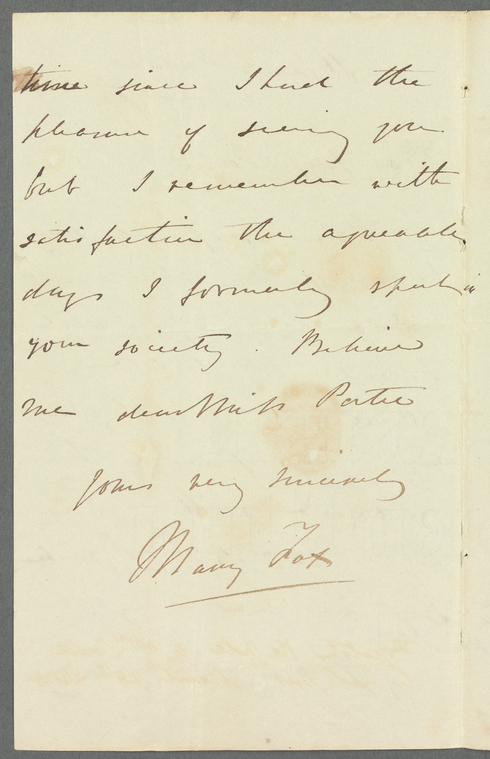 time since I had the
pleasure of seeing you
but I remember with
satisfaction the agreeable
days I formerly spent in
your society. Believe
me dear Miss Porter
yours very sincerely
Mary Fox